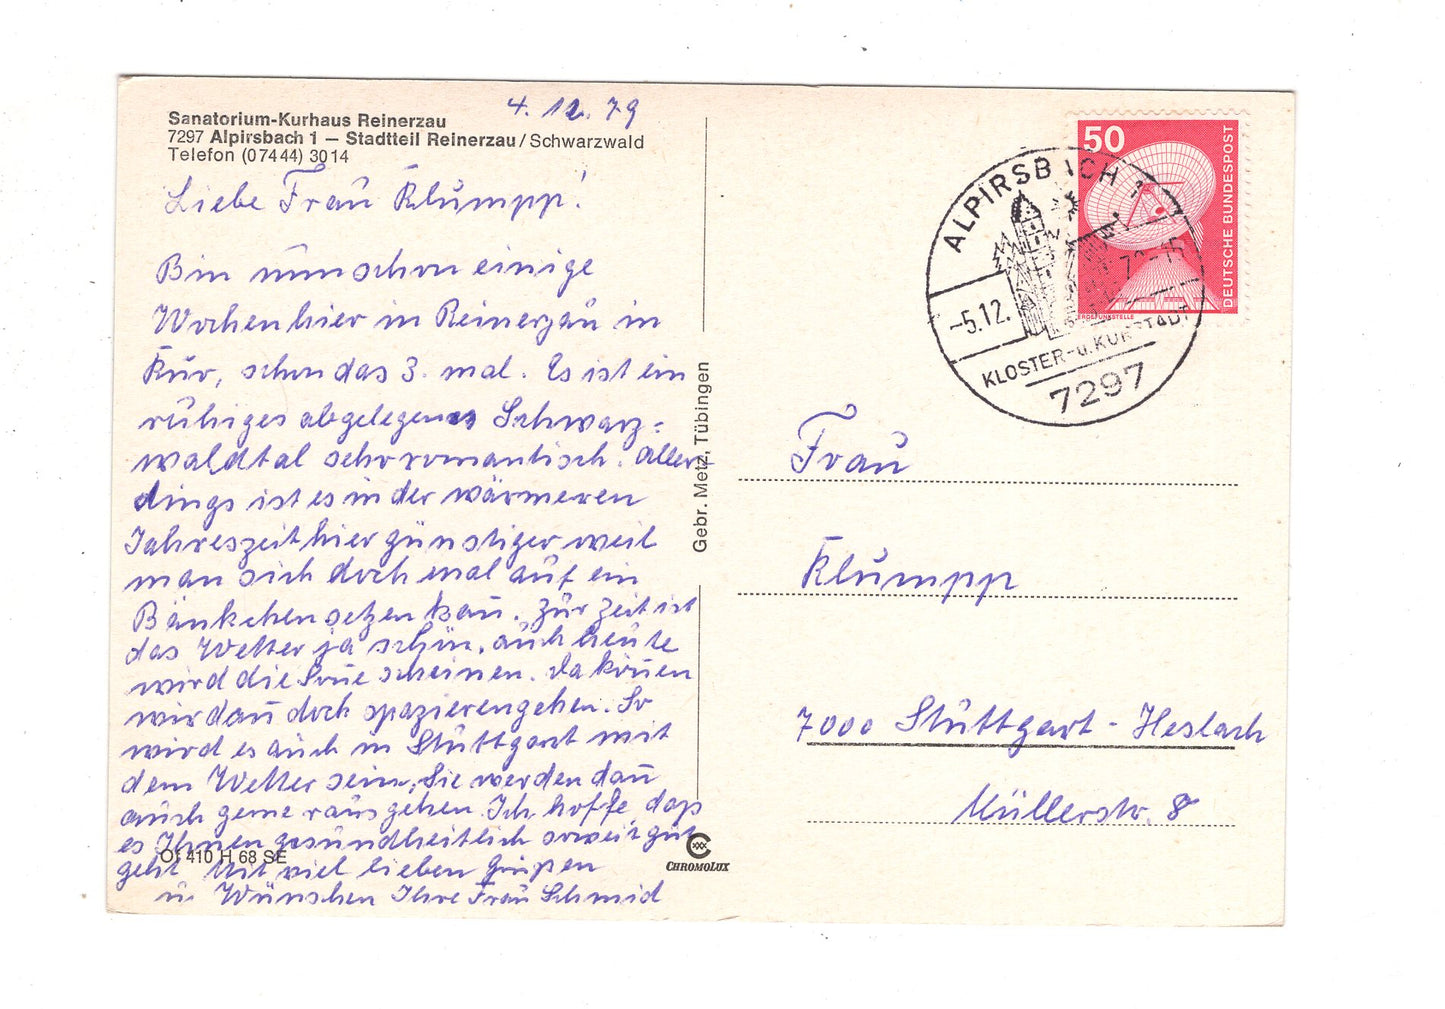 4. 12. 79
Sanatorium-Kurhaus Reinerzau
7297 Alpirsbach 1 – Stadtteil Reinerzau/Schwarzwald
Telefon (07444) 3014
Liebe Frau Klumpp!
Bin nun schon einige
Wochen hier in Reinerzau in
Kur, schon das 3. mal. Es ist ein
ruhiges abgelegenes Schwarz=
waldtal sehr romantisch. Aller-
dings ist es in der wärmeren
Jahreszeit hier günstiger weil
man sich doch mal auf ein
Bänkchen setzen kan̄. Zur Zeit ist
das Wetter ja schön, auch heute
wird die Son̄e scheinen. Da kön̄en
wir dan̄ doch spazierengehen. So
wird es auch in Stuttgart mit
dem Wetter sein, Sie werden dan̄
auch gerne rausgehen. Ich hoffe, daß
es Ihnen gesundheitlich soweit gut
geht. Mit viel lieben Grüßen
u. Wünschen Ihre Frau Schmid
Of 410 H 68 SE
Gebr. Metz, Tübingen
CHROMOLUX
50
DEUTSCHE BUNDESPOST
ERDEFUNKSTELLE
ALPIRSBACH 1
-5.12.79-15
KLOSTER-u.KURSTADT
7297
Frau
Klumpp
7000 Stuttgart-Heslach
Müllerstr. 8